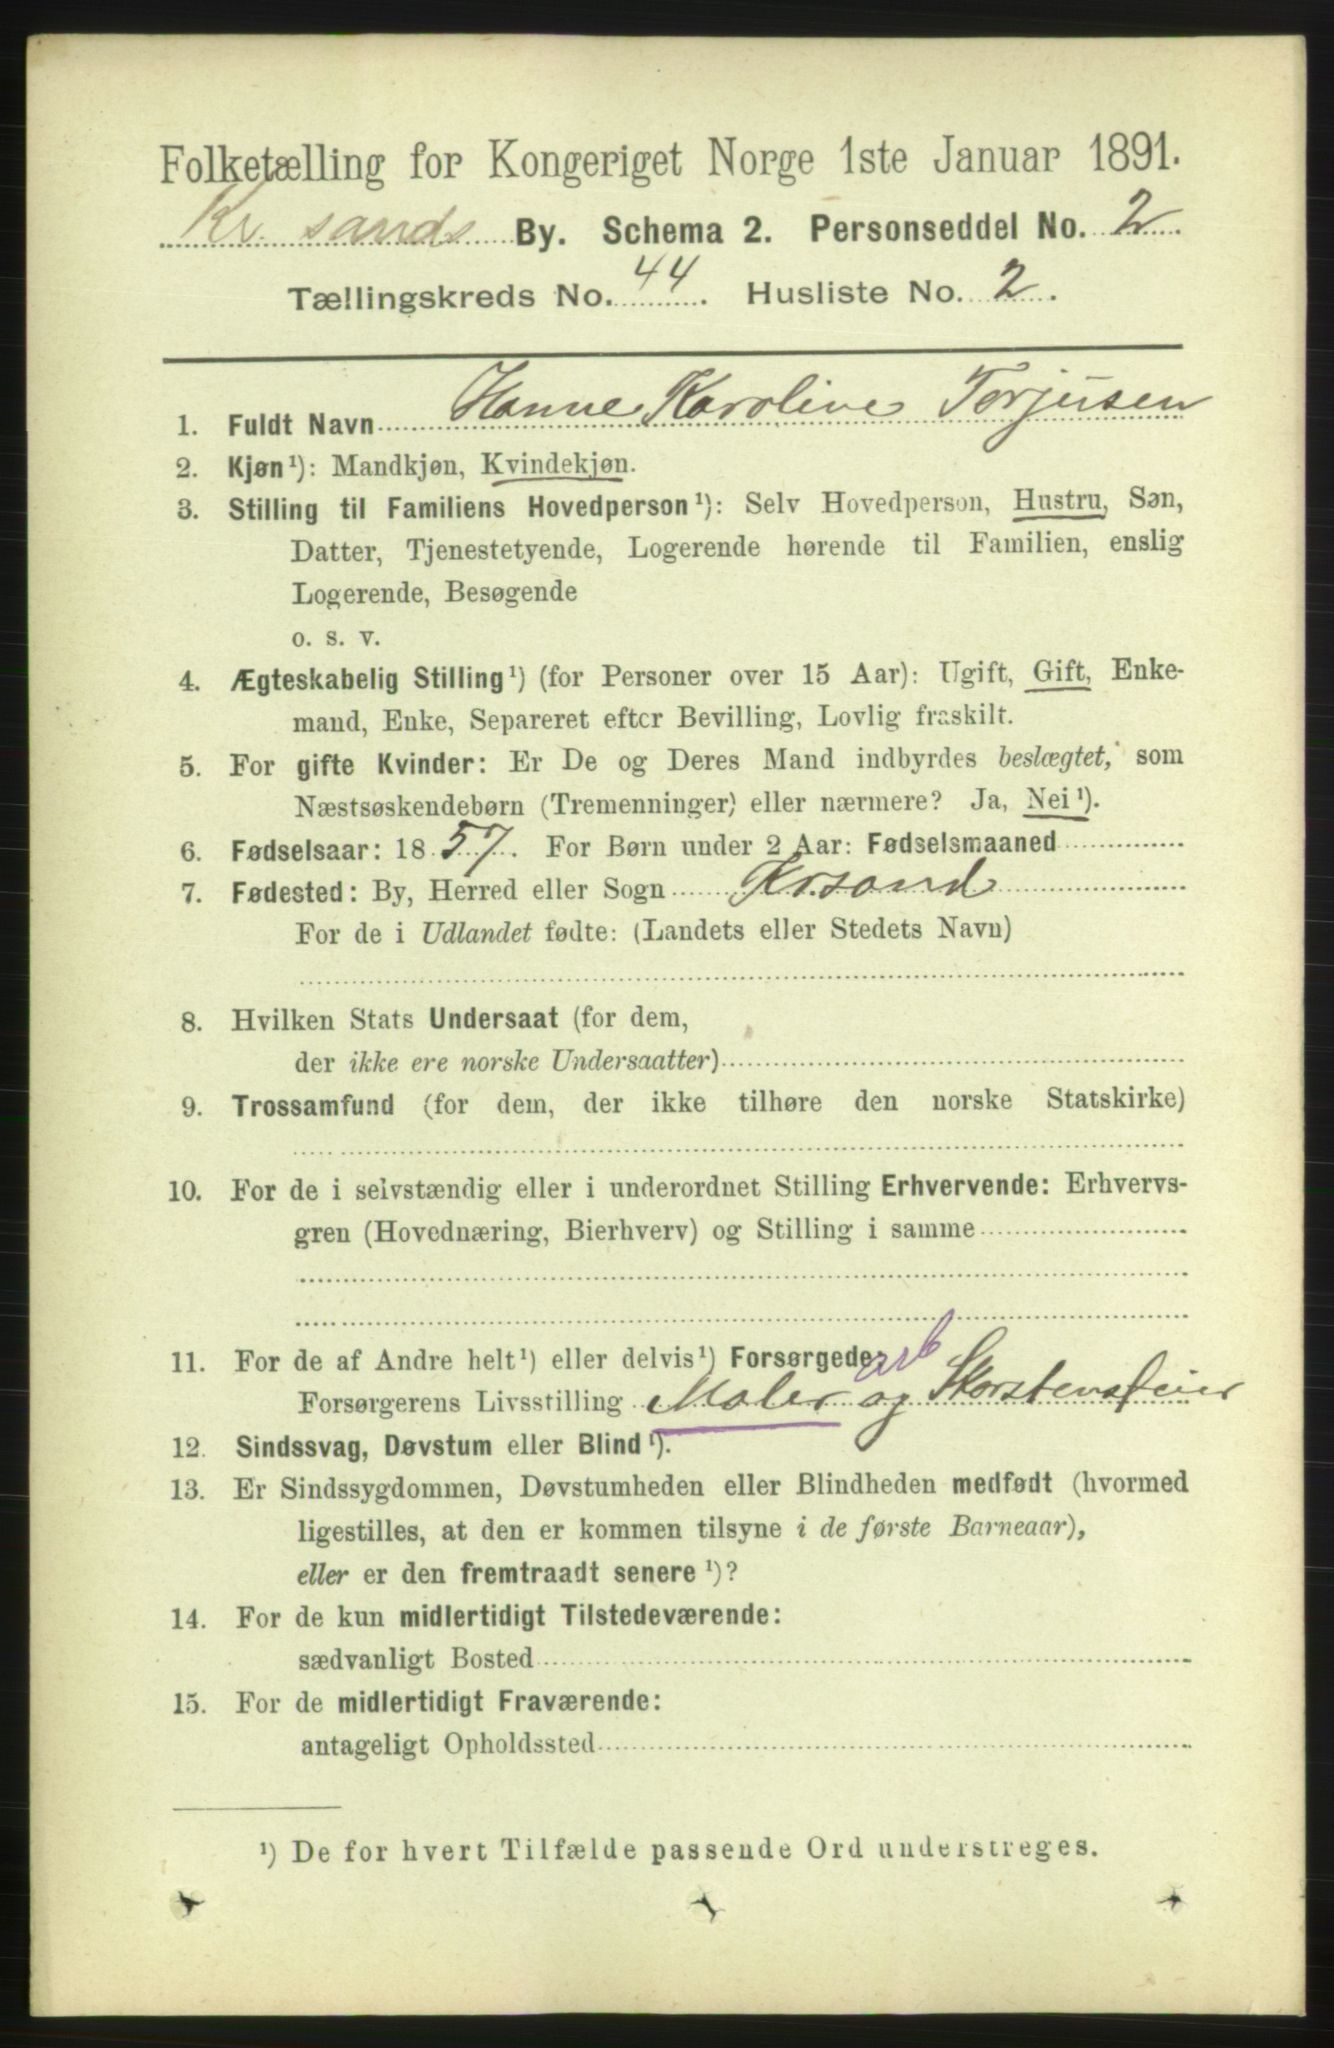 Folketælling for Kongeriget Norge 1ste Januar 1891.
Kr. sands By. Schema 2. Personseddel No. 2.
Tællingskreds No. 44. Husliste No. 2.
1. Fuldt Navn Hanne Karoline Torjusen
2. Kjøn¹): Mandkjøn, Kvindekjøn.
3. Stilling til Familiens Hovedperson¹): Selv Hovedperson, Hustru, Søn,
Datter, Tjenestetyende, Logerende hørende til Familien, enslig
Logerende, Besøgende
o. s. v.
4. Ægteskabelig Stilling¹) (for Personer over 15 Aar): Ugift, Gift, Enke-
mand, Enke, Separeret efter Bevilling, Lovlig fraskilt.
5. For gifte Kvinder: Er De og Deres Mand indbyrdes beslægtet, som
Næstsøskendebørn (Tremenninger) eller nærmere? Ja, Nei¹).
6. Fødselsaar: 1857. For Børn under 2 Aar: Fødselsmaaned
7. Fødested: By, Herred eller Sogn Krsand
For de i Udlandet fødte: (Landets eller Stedets Navn)
8. Hvilken Stats Undersaat (for dem,
der ikke ere norske Undersaatter)
9. Trossamfund (for dem, der ikke tilhøre den norske Statskirke)
10. For de i selvstændig eller i underordnet Stilling Erhvervende: Erhvervs-
gren (Hovednæring, Bierhverv) og Stilling i samme
11. For de af Andre helt¹) eller delvis¹) Forsørgede: arb
Forsørgerens Livsstilling Maler og Skorstensfeier
12. Sindssvag, Døvstum eller Blind¹).
13. Er Sindssygdommen, Døvstumheden eller Blindheden medfødt (hvormed
ligestilles, at den er kommen tilsyne i de første Barneaar),
eller er den fremtraadt senere¹)?
14. For de kun midlertidigt Tilstedeværende:
sædvanligt Bosted
15. For de midlertidigt Fraværende:
antageligt Opholdssted
¹) De for hvert Tilfælde passende Ord understreges.